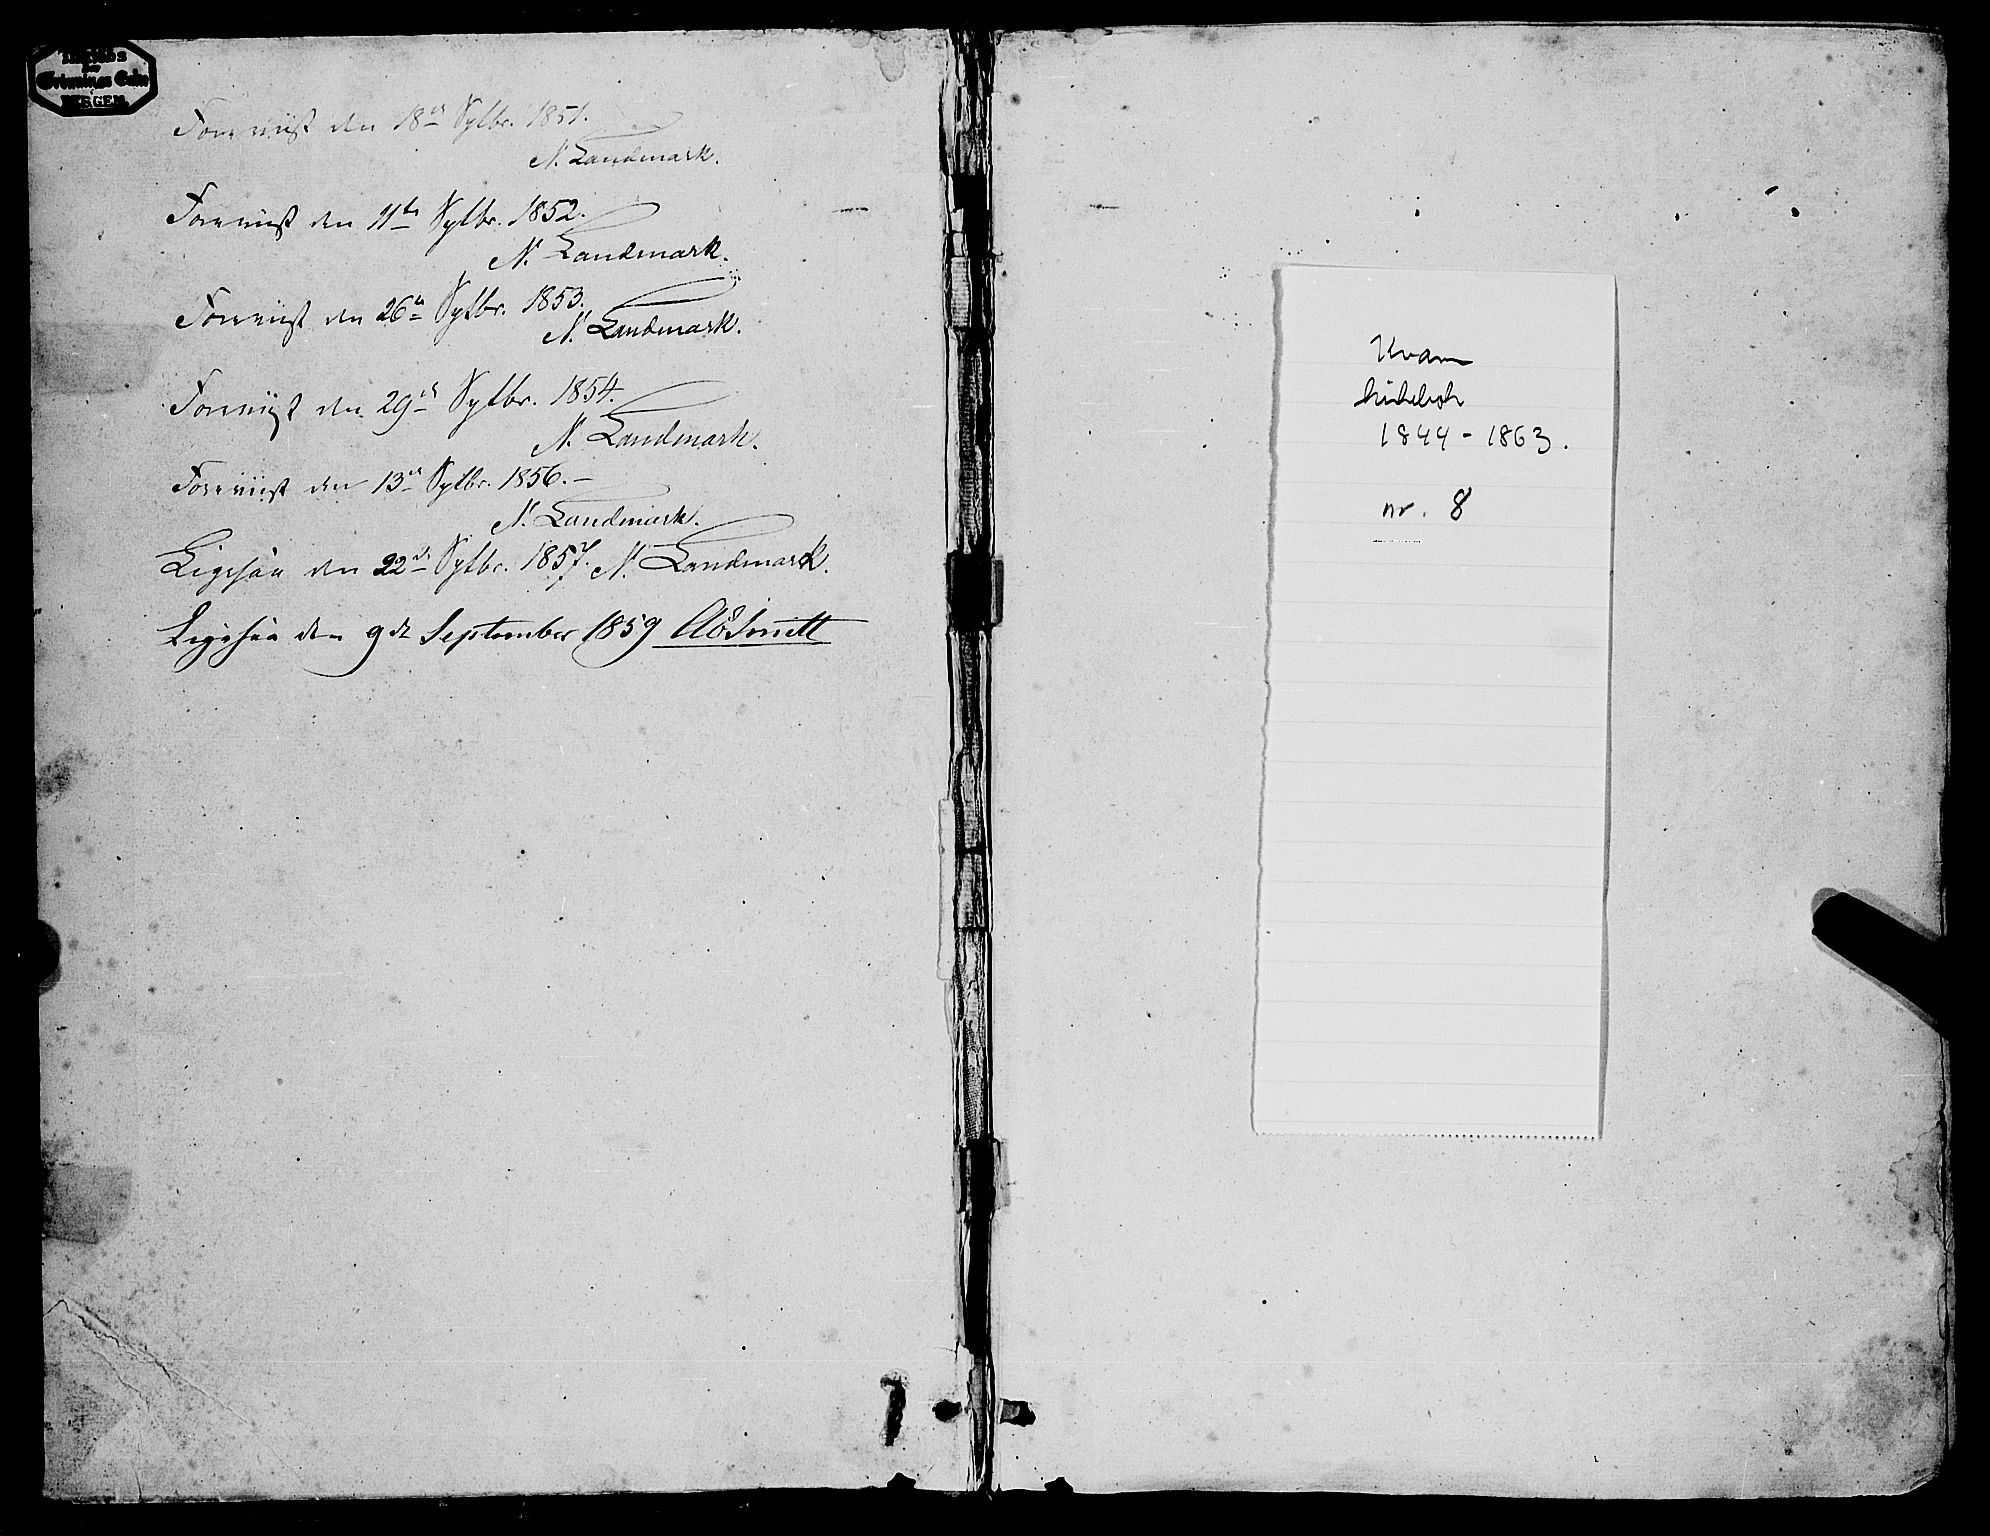 BERGEN
Foreviist den 18de Sptbr. 1851.
N. Landmark.
Foreviist den 11te Sptbr. 1852.
N. Landmark.
Foreviist den 26de Sptbr. 1853.
N. Landmark.
Foreviist den 29de Sptbr. 1854.
N. Landmark.
Foreviist den 13de Sptbr. 1856. –
N. Landmark.
Ligesaa den 22de Sptbr. 1857. N. Landmark.
Ligesaa den 9de September 1859
Kvam
kirkebok
1844 - 1863.
nr. 8